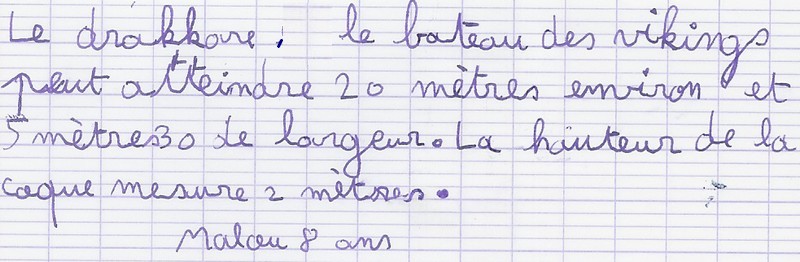 Le drakkare, le bateau des vikings
peut atteindre 20 mètres environ et
5 mètres30 de largeur. La hauteur de la
coque mesure 2 mètres.
Malou 8 ans